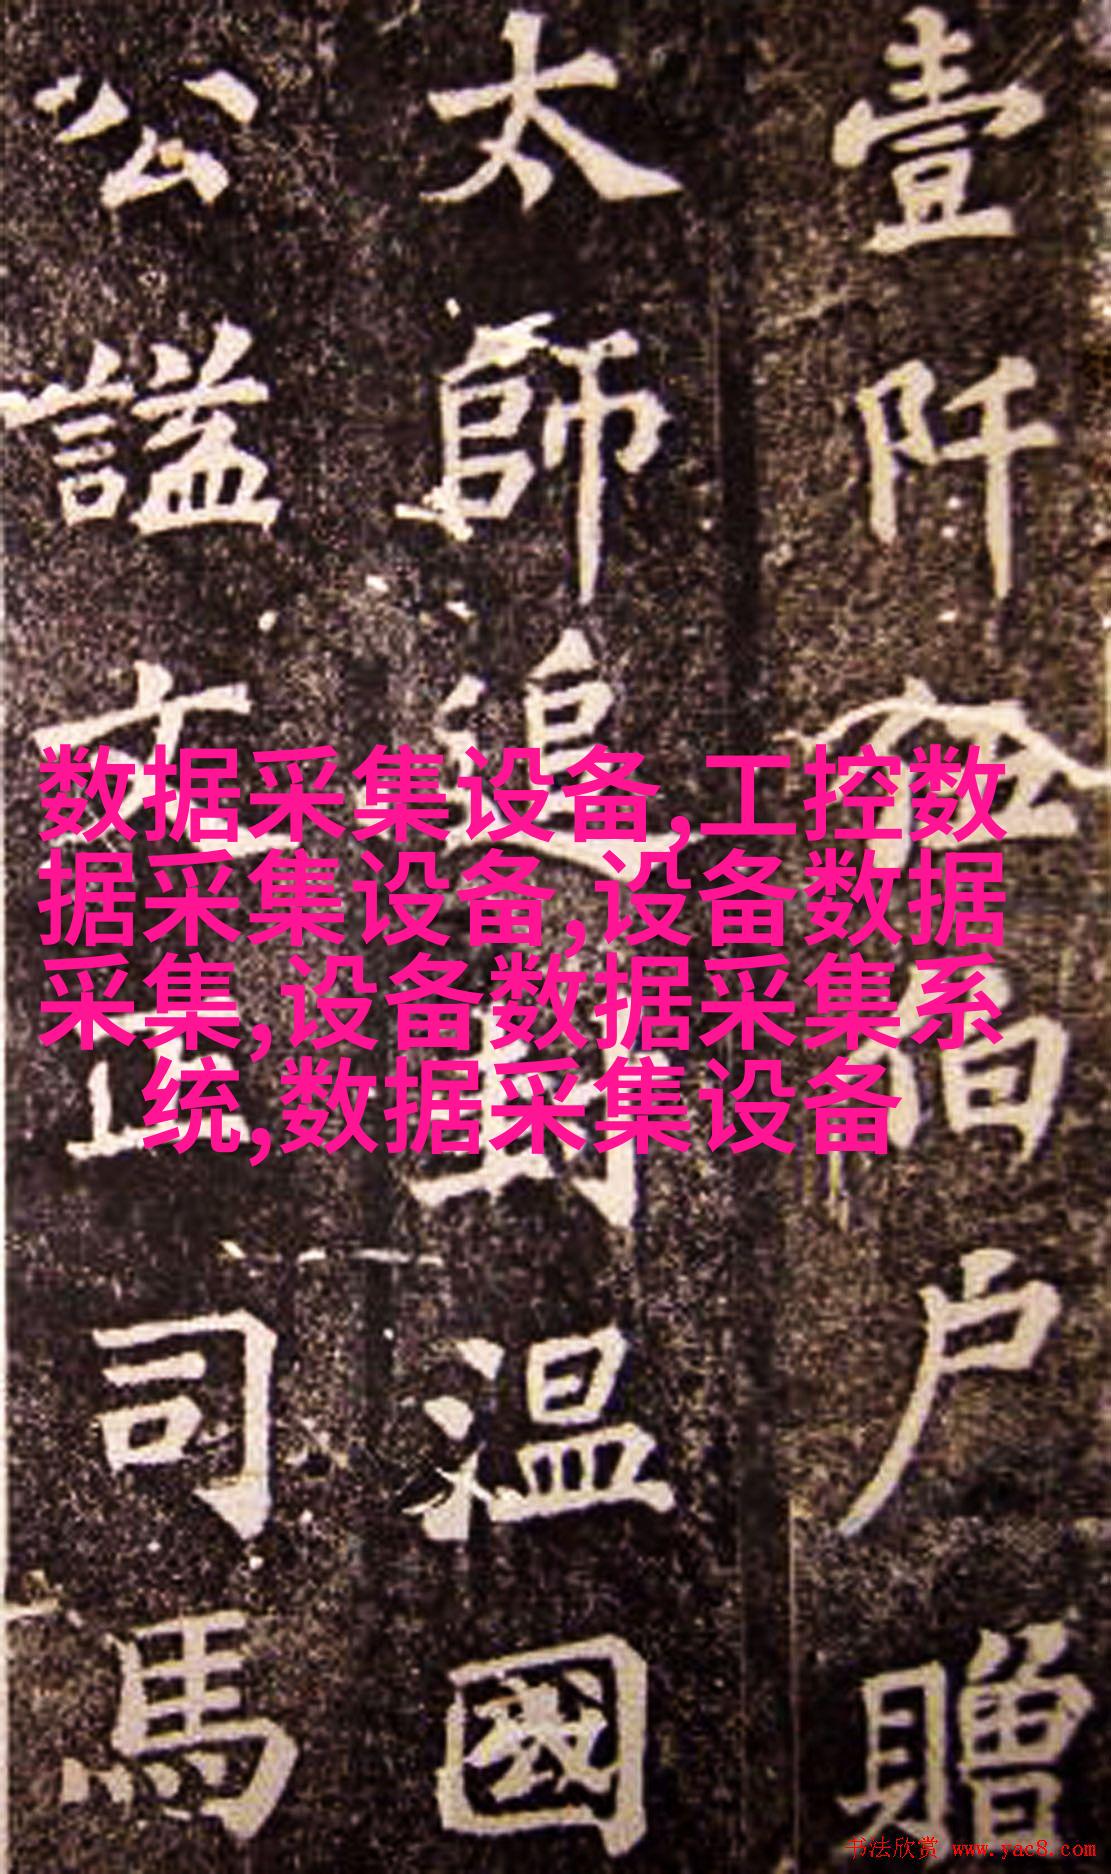 数据采集设备,工控数
据采集设备,设备数据
采集,设备数据采集系
统,数据采集设备
壹阡叁伯户贈
太師追封温國
公謚文正司馬
书法欣赏 www.yac8.com